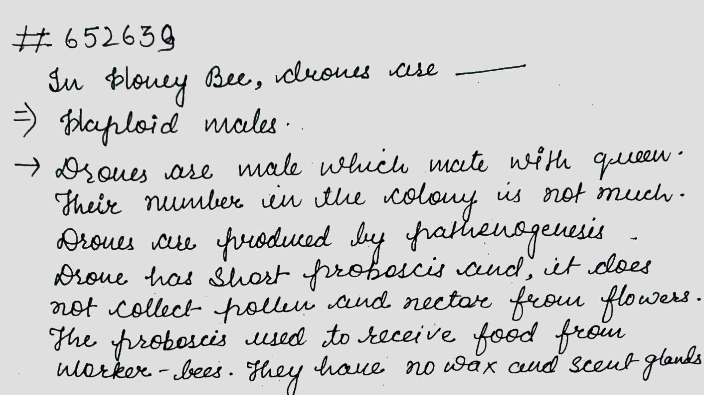 # 652639
In Honey Bee, drones are ____
⇒ Haploid males.
→ Drones are male which mate with queen.
Their number in the colony is not much.
Drones are produced by pathenogenesis.
Drone has short proboscis and, it does
not collect pollen and nectar from flowers.
The proboscis used to receive food from
worker-bees. They have no wax and scent glands